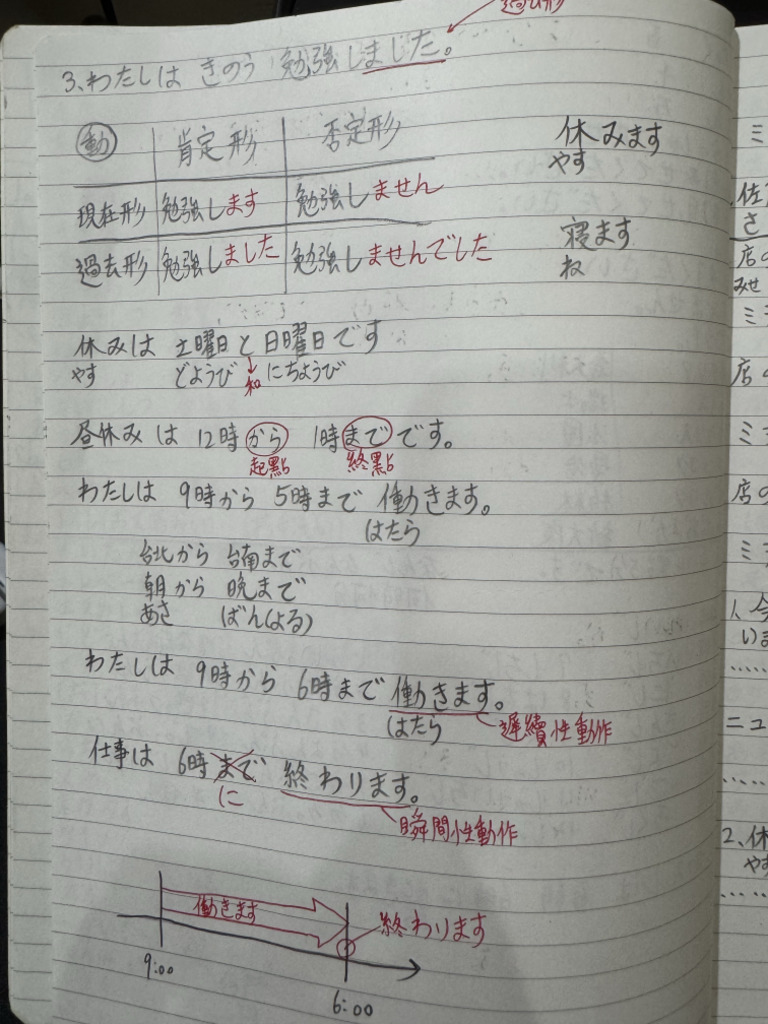 過去形
3、わたしは きのう 勉強しました。
動 肯定形 否定形
現在形 勉強します 勉強しません
過去形 勉強しました 勉強しませんでした
休みます
やす
寝ます
ね
休みは 土曜日と日曜日です
やす どようび 和 にちようび
昼休みは 12時から 1時までです。
起點 終點
わたしは 9時から 5時まで 働きます。
はたら
台北から 台南まで
朝から 晩まで
あさ ばん(よる)
わたしは 9時から 6時まで 働きます。
はたら 遲續性動作
仕事は 6時まで 終わります。
に
瞬間性動作
働きます
終わります
9:00
6:00
ミ
佐
さ
店の
みせ
ミ
店の
ミ
店の
ミ
1、今
いま
……
ニュ
……
2、休
やす
……